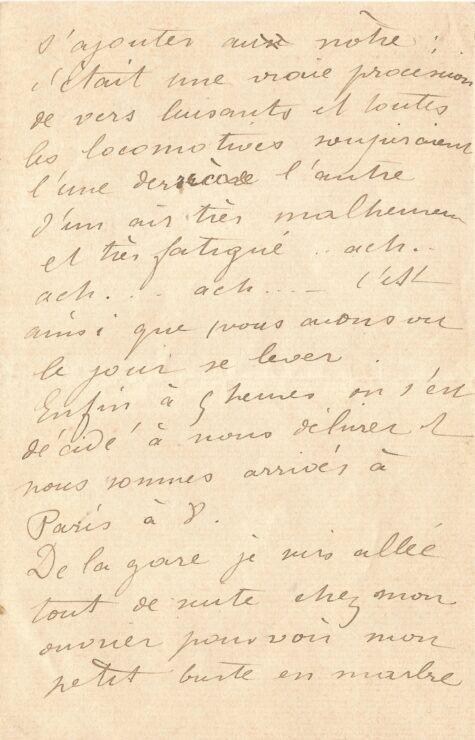 s'ajouter aux nôtre :
c'était une vraie procession
de vers luisants et toutes
les locomotives soupiraient
l'une derrière l'autre
d'un air très malheureux
et très fatigué .. ach ..
ach ... ach .... c'est
ainsi que nous avons vu
le jour se lever .
Enfin à 5 heures on s'est
décidé à nous délivrer et
nous sommes arrivés à
Paris à 8.
De la gare je suis allée
tout de suite chez mon
ouvrier pour voir mon
petit buste en marbre